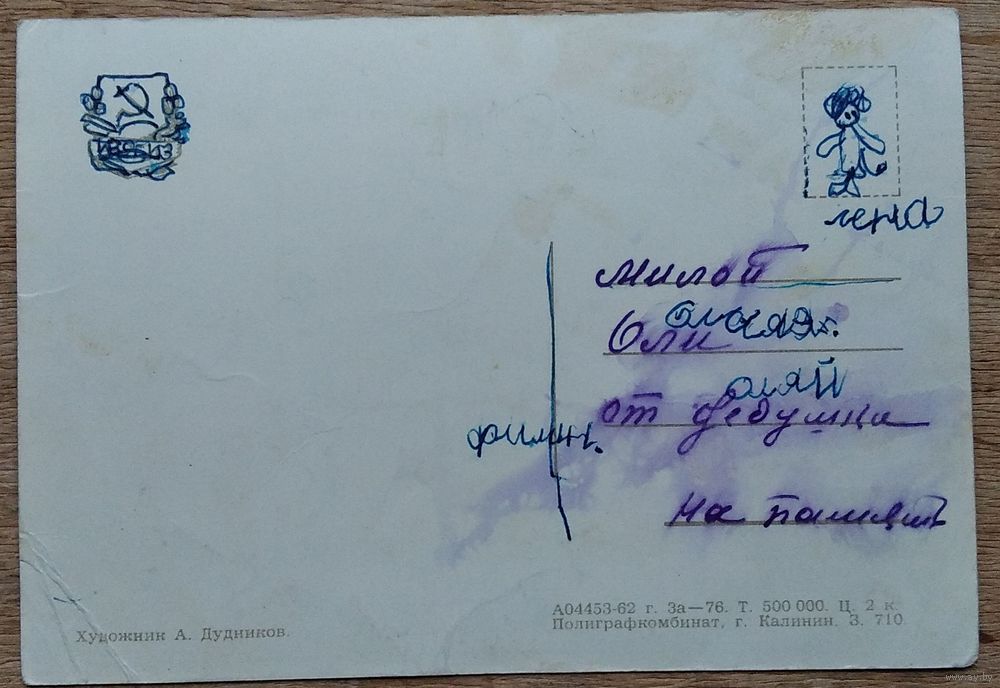 ИЗОГИЗ
лена
милой
Оли
оляй
от дедушка
филин.
На память
Художник А. Дудников.
А04453-62 г. За—76. Т. 500 000. Ц. 2 к.
Полиграфкомбинат, г. Калинин. З. 710.
www.ay.by